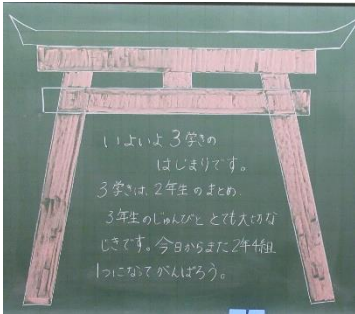 いよいよ3学きの
はじまりです。
3学きは、2年生のまとめ、
3年生のじゅんびと とても大切な
じきです。今日からまた2年4組
1つになってがんばろう。